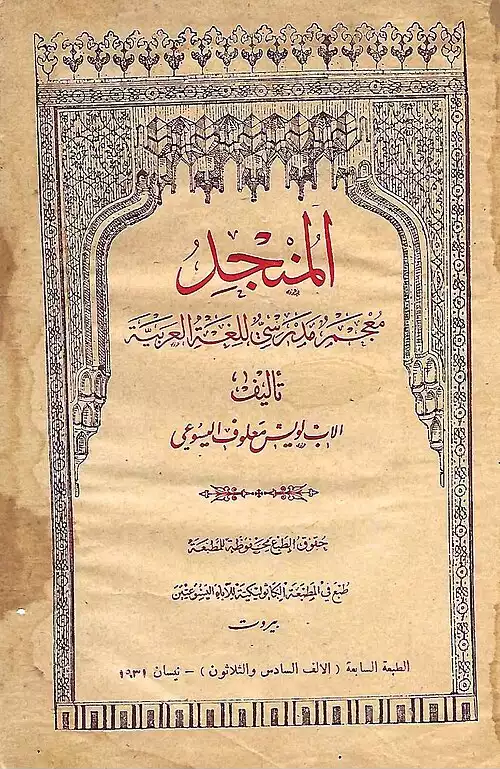 المُنْجِدُ
مُعْجَمٌ مَدْرَسِيٌّ لِلُّغَةِ الْعَرَبِيَّةِ
تَأْلِيفُ
الاب لويس معلوف اليسوعي
حقوق الطبع محفوظة للمطبعة
طبع في المطبعة الكاثوليكية للآباء اليسوعيين
بيروت
الطبعة السابعة ( الالف السادس والثلاثون ) – نيسان ١٩٣١